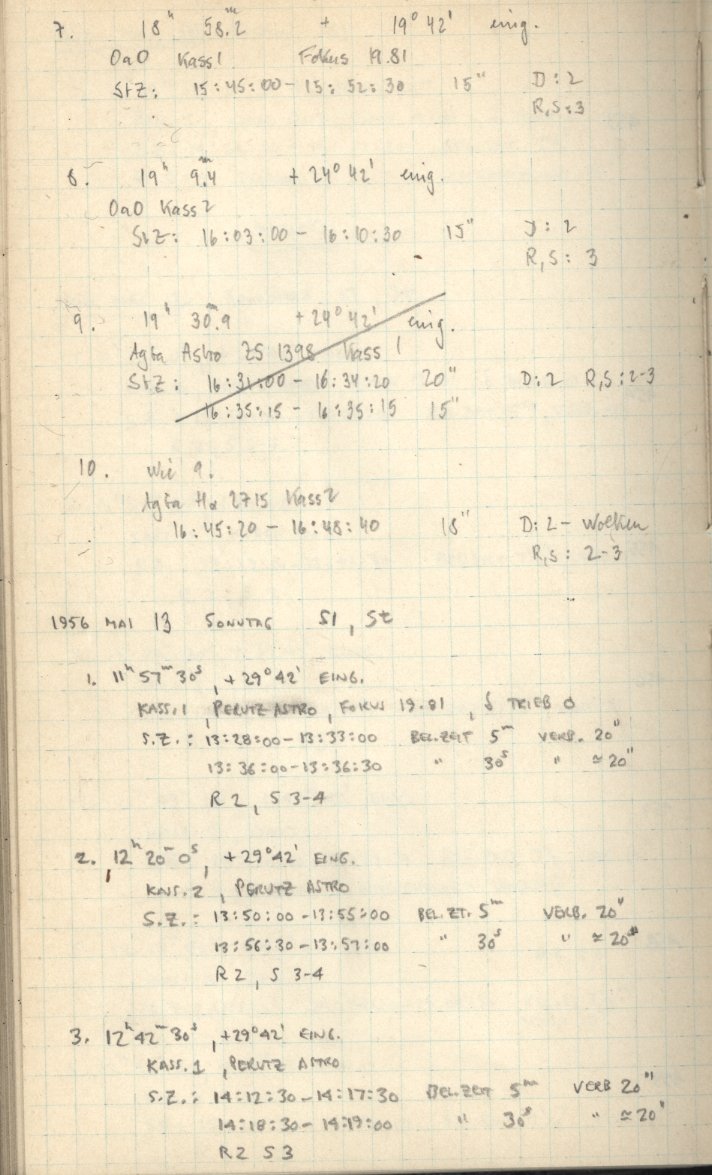 7. 18ʰ 58.2ᵐ + 19° 42' eing.
OaO Kass 1 Fokus 19.81
StZ: 15:45:00 - 15:52:30 15" D: 2
R,S: 3
8. 19ʰ 9.4ᵐ + 24° 42' eing.
OaO Kass 2
StZ: 16:03:00 - 16:10:30 15" D: 2
R,S: 3
9. 19ʰ 30.9ᵐ + 24° 42' eing.
Agfa Astro ZS 1398 Kass 1
StZ: 16:31:00 - 16:34:20 20" D: 2 R,S: 2-3
16:35:15 - 16:35:15 15"
10. wie 9.
Agfa Hα 2715 Kass 2
16:45:20 - 16:48:40 18" D: 2 - Wolken
R,S: 2-3
1956 MAI 13 SONNTAG SI, St
1. 11ʰ 57ᵐ 30ˢ, +29° 42' EING.
KASS. 1, PERUTZ ASTRO, FOKUS 19.81, δ TRIEB 0
S.Z.: 13:28:00 - 13:33:00 BEL.ZEIT 5ᵐ VERB. 20"
13:36:00 - 13:36:30 " 30ˢ " ≃ 20"
R 2, S 3-4
2. 12ʰ 20ᵐ 0ˢ, +29° 42' EING.
KASS. 2, PERUTZ ASTRO
S.Z.: 13:50:00 - 13:55:00 BEL.ZT. 5ᵐ VERB. 20"
13:56:30 - 13:57:00 " 30ˢ " ≃ 20"
R 2, S 3-4
3. 12ʰ 42ᵐ 30ˢ, +29° 42' EING.
KASS. 1, PERUTZ ASTRO
S.Z.: 14:12:30 - 14:17:30 BEL.ZEIT 5ᵐ VERB 20"
14:18:30 - 14:19:00 " 30ˢ " ≃ 20'
R 2 S 3